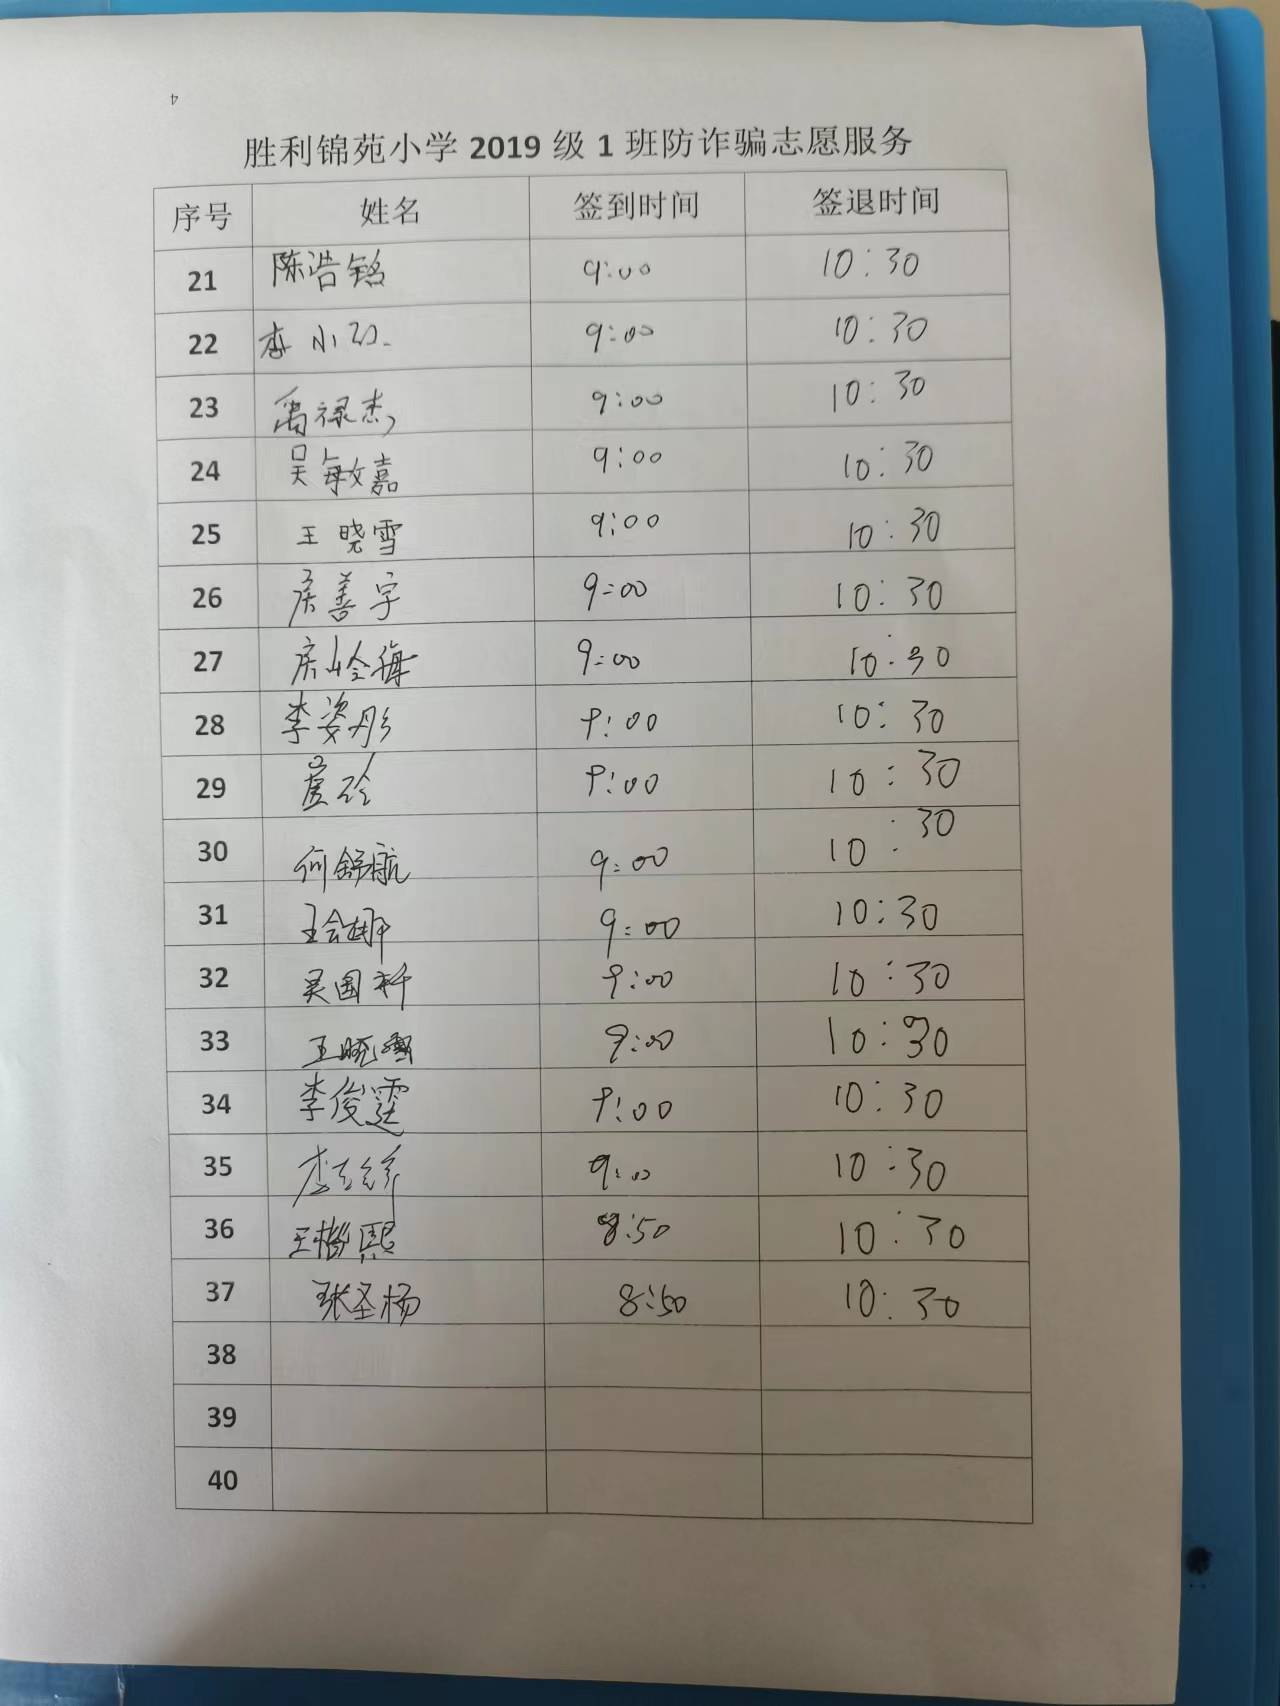 4
胜利锦苑小学 2019 级 1 班防诈骗志愿服务
序号 姓名 签到时间 签退时间
21 陈浩铭 9:00 10:30
22 李小 9:00 10:30
23 禹禄杰 9:00 10:30
24 吴敏嘉 9:00 10:30
25 王晓雪 9:00 10:30
26 侯善宇 9:00 10:30
27 岭海 9:00 10:30
28 李姿彤 9:00 10:30
29 9:00 10:30
30 何舒航 9:00 10:30
31 王会娜 9:00 10:30
32 吴国科 9:00 10:30
33 王晓雪 9:00 10:30
34 李俊霆 9:00 10:30
35 李 9:00 10:30
36 王 熙 8:50 10:30
37 张圣杨 8:50 10:30
38
39
40